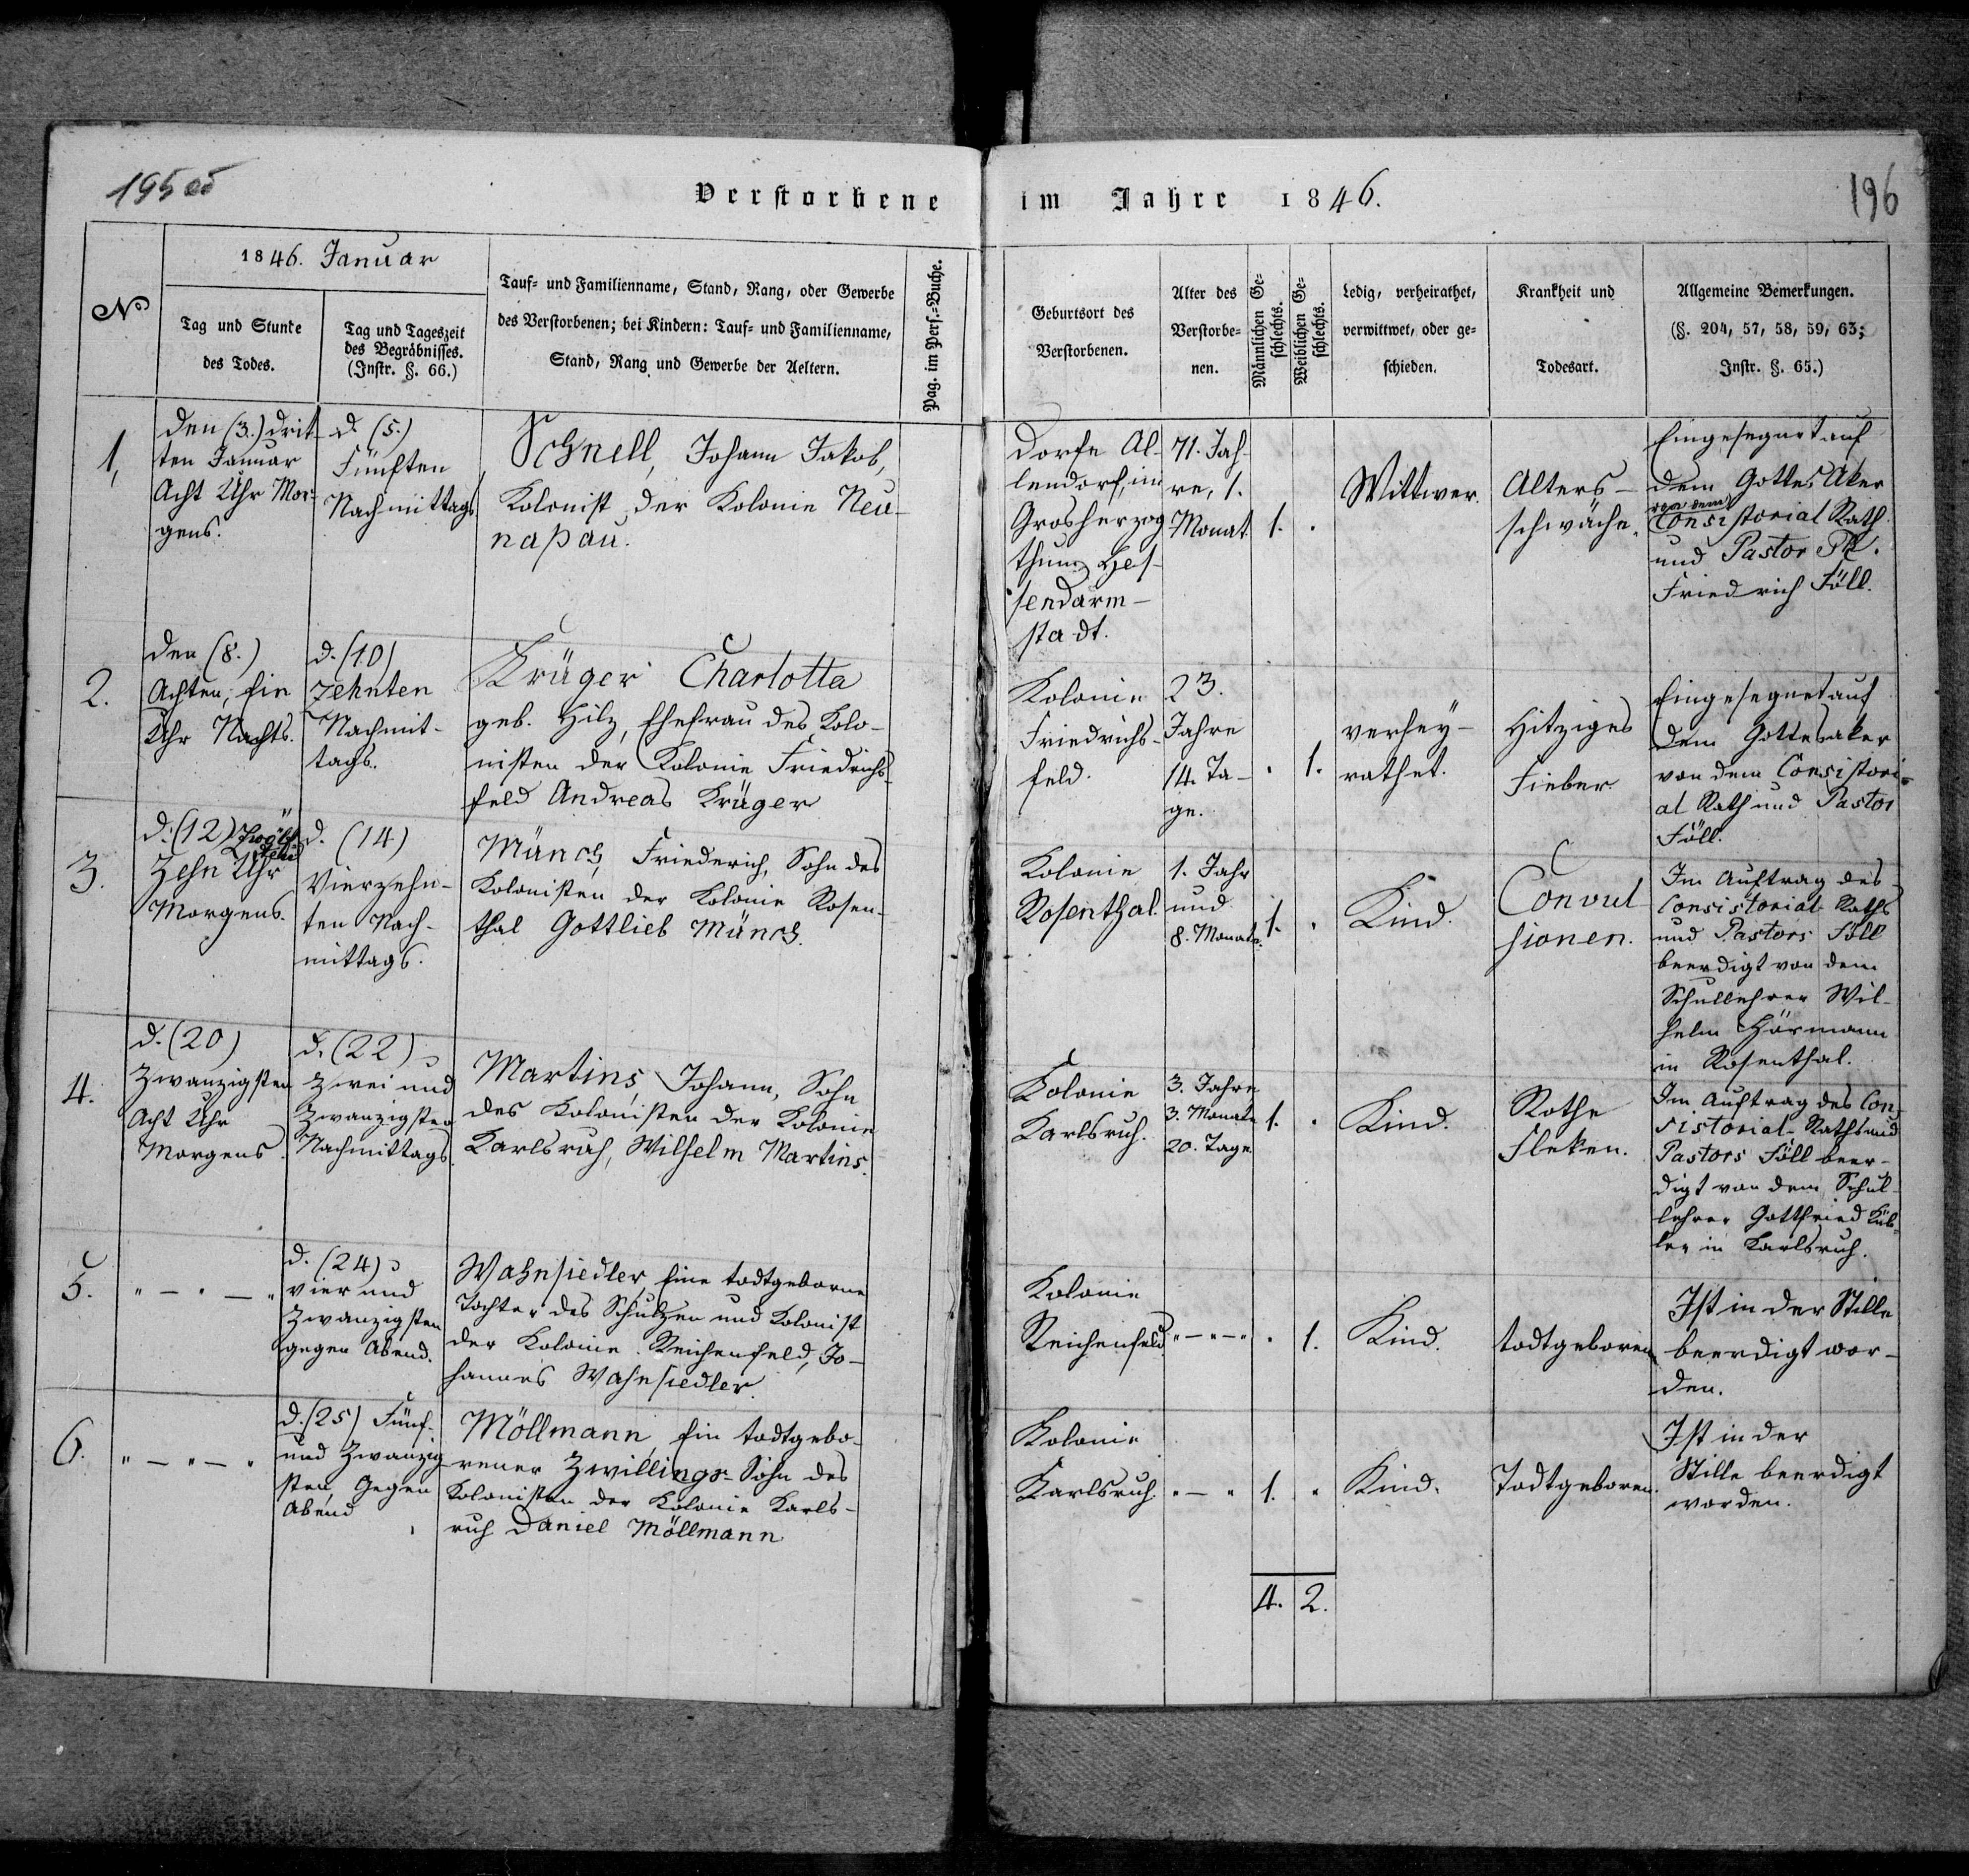 195
Verstorbene im Jahre 1846.
196
1846. Januar
No
Tag und Stunde
des Todes.
Tag und Tageszeit
des Begräbnisses.
(Instr. §. 66.)
Tauf- und Familienname, Stand, Rang, oder Gewerbe
des Verstorbenen; bei Kindern: Tauf- und Familienname,
Stand, Rang und Gewerbe der Aeltern.
Pag. im Pers.-Buche.
Geburtsort des
Verstorbenen.
Alter des
Verstorbe-
nen.
Männlichen Ge-
schlechts.
Weiblichen Ge-
schlechts.
Ledig, verheirathet,
verwittwet, oder ge-
schieden.
Krankheit und
Todesart.
Allgemeine Bemerkungen.
(§. 204, 57, 58, 59, 63;
Instr. §. 65.)
1,
den (3.) drit-
ten Januar
Acht Uhr Mor-
gens.
d. (5.)
Fünften
Nachmittags
Schnell, Johann Jakob,
Kolonist der Kolonie Neu-
naßau.
Dorfe Al-
lendorf, im
Grosherzog-
thum Hes-
sendarm-
stadt.
71. Jah-
re, 1.
Monat
1.
.
Wittwer.
Alters-
schwäche.
Eingesegnet auf
dem Gottes Aker
von dem
Consistorial Rath
und Pastor
Friedrich Föll.
2.
den (8.)
Achten, Ein
Uhr Nachts.
d. (10)
zehnten
Nachmit-
tags.
Krüger Charlotta
geb. Hilz, Ehefrau des Kolo-
nisten der Kolonie Friedrichs-
feld Andreas Krüger
Kolonie
Friedrichs-
feld.
23.
Jahre
14. Ta-
ge.
.
1.
verhey-
rathet.
Hitziges
Fieber.
Eingesegnet auf
dem Gottesaker
von dem Consistori-
al Rath und Pastor
Föll.
3.
d. (12) Zwölf-
ten
Zehn Uhr
Morgens.
d. (14)
Vierzehn-
ten Nach-
mittags.
Münch, Friederich, Sohn des
Kolonisten der Kolonie Rosen-
thal Gottlieb Münch.
Kolonie
Rosenthal.
1. Jahr
und
8. Monate.
1.
.
Kind.
Convul-
sionen.
Im Auftrag des
Consistorial Raths
und Pastors Föll
beerdigt von dem
Schullehrer Wil-
helm Hörmann
in Rosenthal.
4.
d. (20)
Zwanzigsten
Acht Uhr
Morgens.
d. (22)
Zwei und
Zwanzigsten
Nachmittags.
Martins, Johann, Sohn
des Kolonisten der Kolonie
Karlsruh, Wilhelm Martins.
Kolonie
Karlsruh.
3. Jahre
3. Monate
20. Tage
1.
.
Kind.
Rothe
Fleken.
Im Auftrag des Con-
sistorial-Raths und
Pastors Föll beer-
digt von dem Schul-
lehrer Gottfried Küb-
ler in Karlsruh.
5.
" — " — "
d. (24)
vier und
Zwanzigsten
gegen Abend.
Wahnsiedler, Eine todtgeborne
Tochter des Schulzen und Kolonist
der Kolonie Reichenfeld, Jo-
hannes Wahnsiedler.
Kolonie
Reichenfeld
" — " — "
.
1.
Kind.
todtgeboren
Ist in der Stille
beerdigt wor-
den.
6.
" — " — "
d. (25) Fünf-
und Zwanzig-
sten, Gegen
Abend
Möllmann, Ein todtgebo-
rener Zwillings-Sohn des
Kolonisten der Kolonie Karls-
ruh Daniel Möllmann
Kolonie
Karlsruh.
" — "
1.
.
Kind.
Todtgeboren.
Ist in der
Stille beerdigt
worden.
4. 2.